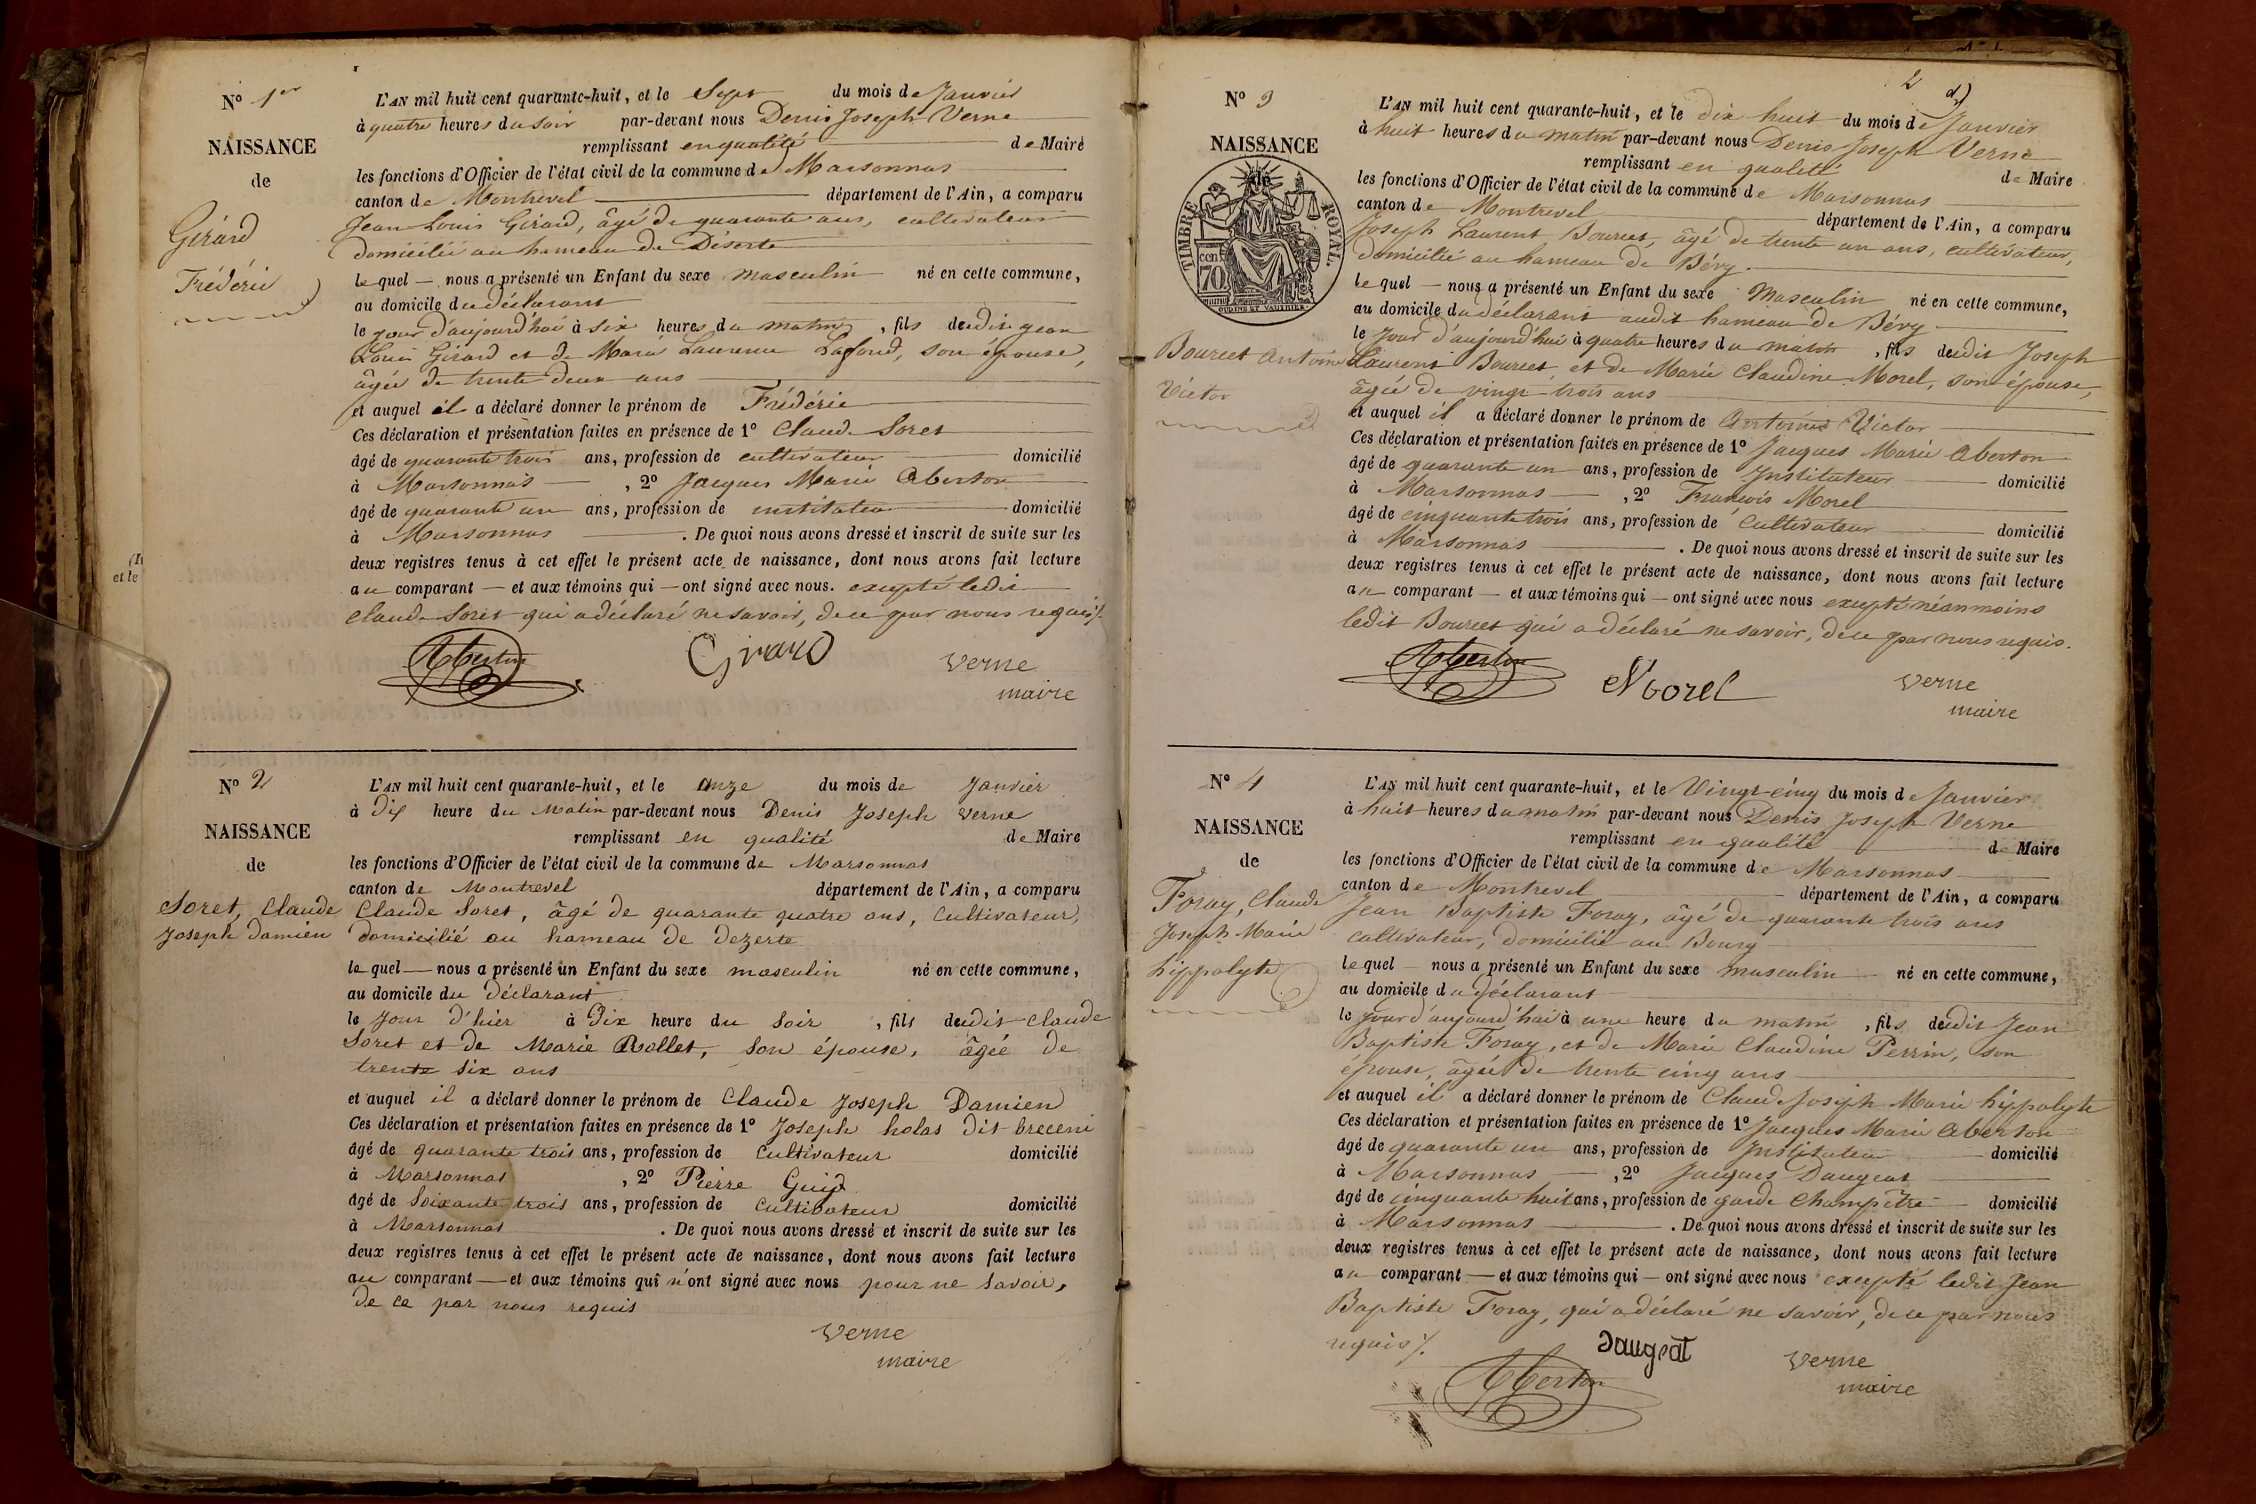 N° 1er
NAISSANCE
de
Gérard
Frédéric
L'AN mil huit cent quarante-huit, et le Sept du mois de Janvier
à quatre heures du soir par-devant nous Denis Joseph Verne
remplissant en qualité de Maire
les fonctions d'Officier de l'état civil de la commune de Marsonnas
canton de Montrevel département de l'Ain, a comparu
Jean Louis Gérard, âgé de quarante ans, cultivateur
domicilié au hameau de Déserte
le quel — nous a présenté un Enfant du sexe masculin né en cette commune,
au domicile du déclarant
le jour d'aujourd'hui à six heures du matin, fils dudit Jean
Louis Gérard et de Marie Laurence Lafond, son épouse,
âgée de trente deux ans
et auquel il a déclaré donner le prénom de Frédéric
Ces déclaration et présentation faites en présence de 1° Claude Soret
âgé de quarante trois ans, profession de cultivateur domicilié
à Marsonnas, 2° Jacques Marie Aberton
âgé de quarante un ans, profession de instituteur domicilié
à Marsonnas. De quoi nous avons dressé et inscrit de suite sur les
deux registres tenus à cet effet le présent acte de naissance, dont nous avons fait lecture
au comparant — et aux témoins qui — ont signé avec nous. excepté ledit
Claude Soret qui a déclaré ne savoir, de ce par nous requis /.
Aberton Girard Verne
maire
N° 2
NAISSANCE
de
Soret, Claude
Joseph Damien
L'AN mil huit cent quarante-huit, et le onze du mois de Janvier
à Dix heure du Matin par-devant nous Denis Joseph Verne
remplissant en qualité de Maire
les fonctions d'Officier de l'état civil de la commune de Marsonnas
canton de Montrevel département de l'Ain, a comparu
Claude Soret, âgé de quarante quatre ans, Cultivateur,
domicilié au hameau de Dezerte
le quel — nous a présenté un Enfant du sexe masculin né en cette commune,
au domicile du déclarant
le Jour d'hier à Dix heure du Soir, fils dudit Claude
Soret et de Marie Rollet, son épouse, âgée de
trente six ans
et auquel il a déclaré donner le prénom de Claude Joseph Damien
Ces déclaration et présentation faites en présence de 1° Joseph holas dit
âgé de quarante trois ans, profession de Cultivateur domicilié
à Marsonnas, 2° Pierre Guid
âgé de Soixante trois ans, profession de Cultivateur domicilié
à Marsonnas. De quoi nous avons dressé et inscrit de suite sur les
deux registres tenus à cet effet le présent acte de naissance, dont nous avons fait lecture
au comparant — et aux témoins qui n'ont signé avec nous pour ne savoir,
de ce par nous requis
Verne
maire
2
N° 3
NAISSANCE
de
TIMBRE ROYAL
cen 70
Bourcet Antoine
Victor
L'AN mil huit cent quarante-huit, et le dix huit du mois de Janvier
à huit heures du matin par-devant nous Denis Joseph Verne
remplissant en qualité de Maire
les fonctions d'Officier de l'état civil de la commune de Marsonnas
canton de Montrevel département de l'Ain, a comparu
Joseph Laurent Bourcet, âgé de trente un ans, cultivateur,
domicilié au hameau de Bévy.
le quel — nous a présenté un Enfant du sexe Masculin né en cette commune,
au domicile du déclarant audit hameau de Bévy
le Jour d'aujourd'hui à quatre heures du matin, fils dudit Joseph
Laurent Bourcet et de Marie Claudine Morel, son épouse,
âgée de vingt trois ans
et auquel il a déclaré donner le prénom de Antoine Victor
Ces déclaration et présentation faites en présence de 1° Jacques Marie Aberton
âgé de quarante un ans, profession de Instituteur domicilié
à Marsonnas, 2° François Morel
âgé de cinquante trois ans, profession de Cultivateur domicilié
à Marsonnas. De quoi nous avons dressé et inscrit de suite sur les
deux registres tenus à cet effet le présent acte de naissance, dont nous avons fait lecture
au comparant — et aux témoins qui — ont signé avec nous excepté néanmoins
ledit Bourcet qui a déclaré ne savoir, de ce par nous requis.
Aberton Morel Verne
maire
N° 4
NAISSANCE
de
Foray, Claude
Joseph Marie
hippolyte
L'AN mil huit cent quarante-huit, et le Vingt-cinq du mois de Janvier
à huit heures du matin par-devant nous Denis Joseph Verne
remplissant en qualité de Maire
les fonctions d'Officier de l'état civil de la commune de Marsonnas
canton de Montrevel département de l'Ain, a comparu
Jean Baptiste Foray, âgé de quarante trois ans
cultivateur, domicilié au Bourg
le quel — nous a présenté un Enfant du sexe masculin né en cette commune,
au domicile du déclarant
le jour d'aujourd'hui à une heure du matin, fils dudit Jean
Baptiste Foray, et de Marie Claudine Perrin, son
épouse, âgée de trente cinq ans
et auquel il a déclaré donner le prénom de Claude Joseph Marie hippolyte
Ces déclaration et présentation faites en présence de 1° Jacques Marie Aberton
âgé de quarante un ans, profession de Instituteur domicilié
à Marsonnas, 2° Jacques Daugeat
âgé de cinquante huit ans, profession de garde Champêtre domicilié
à Marsonnas. De quoi nous avons dressé et inscrit de suite sur les
deux registres tenus à cet effet le présent acte de naissance, dont nous avons fait lecture
au comparant — et aux témoins qui — ont signé avec nous excepté ledit Jean
Baptiste Foray, qui a déclaré ne savoir, de ce par nous
requis /.
Daugeat Verne
Aberton maire